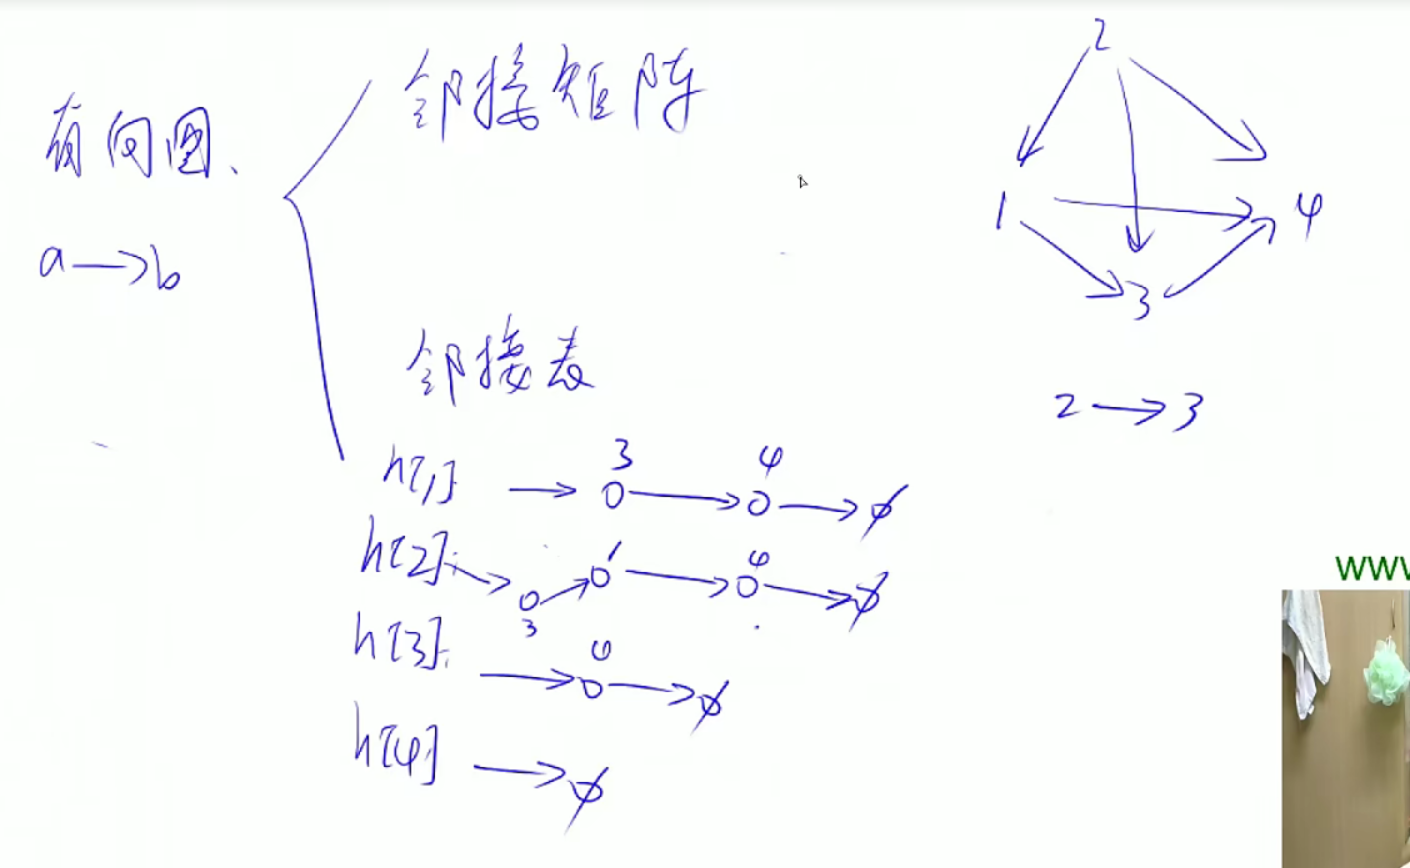 有向图、
a→b
邻接矩阵
邻接表
h[1] → 3 → 4 → ∅
h[2]: → 3 → 1 → 4 → ∅
h[3]: → 4 → ∅
h[4] → ∅
2
1
4
3
2→3
www